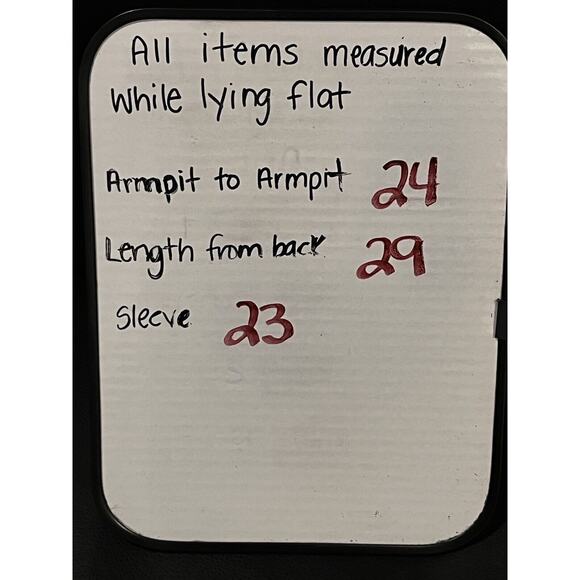 All items measured
while lying flat
Armpit to Armpit 24
Length from back 29
Sleeve 23